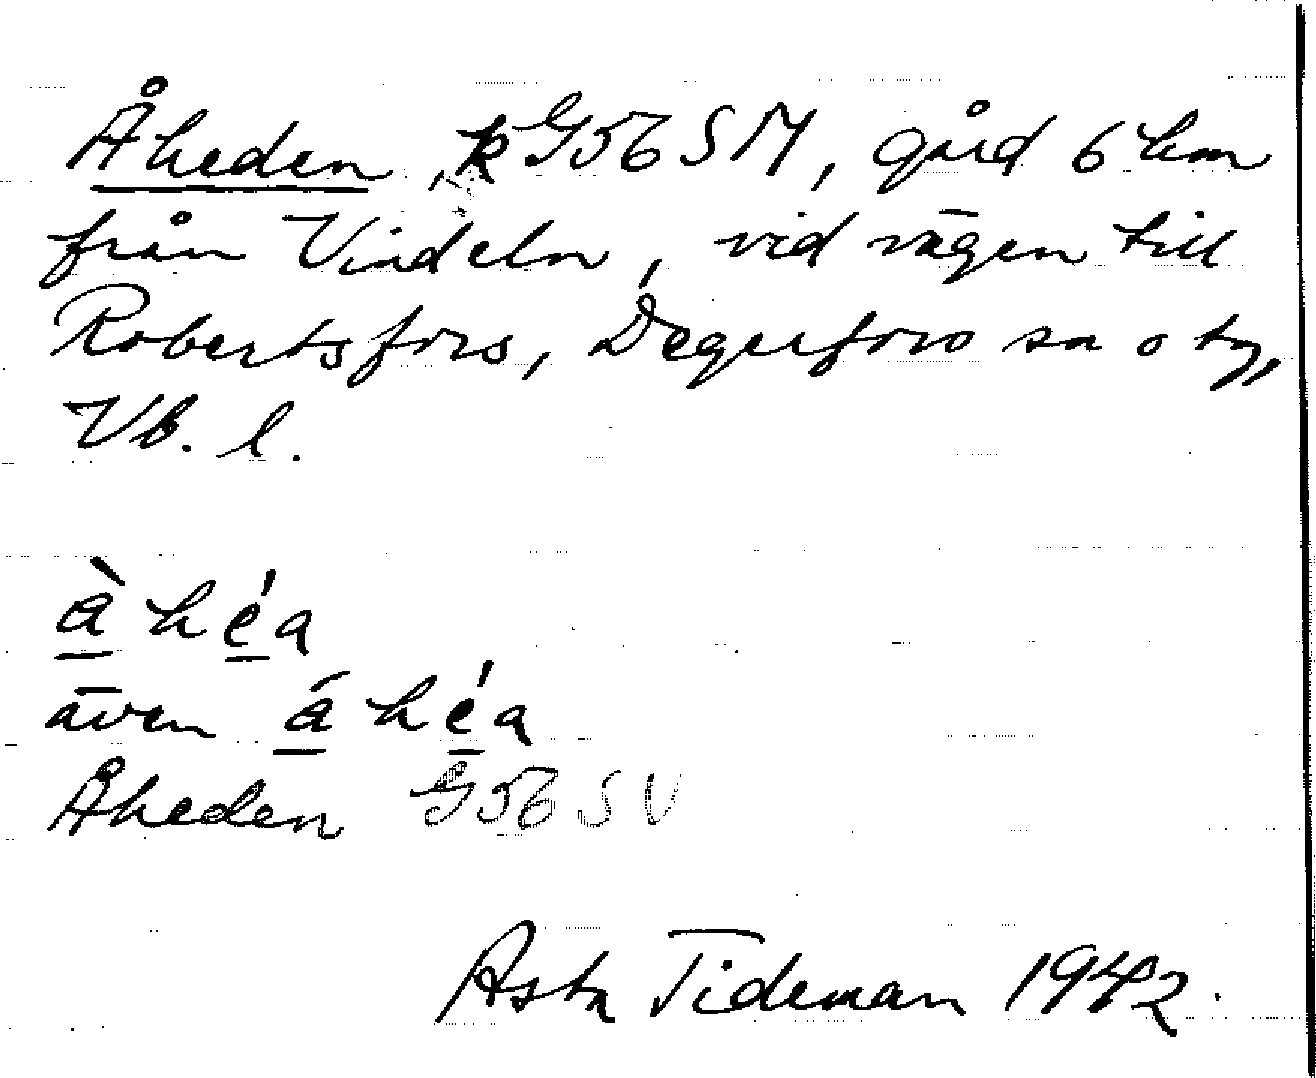 Åheden, k G56 SM, gård 6 km
från Vindeln, vid vägen till
Robertsfors, Degerfors sn o tg,
Vb. l.
à héa
även á héa
Åheden G56 SV
Asta Tideman 1942.